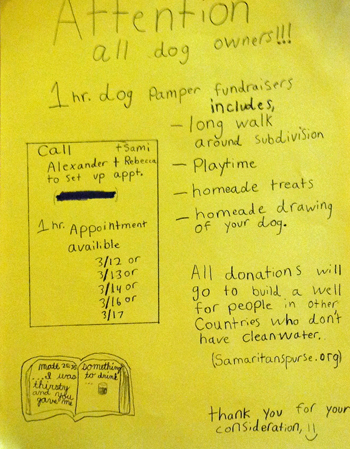 Attention
all dog owners!!!
1 hr. dog Pamper fundraisers
includes,
- long walk
around subdivision
- Playtime
- homeade treats
- homeade drawing
of your dog.
Call + Sami
Alexander + Rebecca
to set up appt.
1 hr. Appointment
available
3/12 or
3/13 or
3/14 or
3/16 or
3/17
All donations will
go to build a well
for people in other
Countries who don't
have cleanwater.
(Samaritanspurse.org)
...I was
thirsty
and you
gave me
something
to drink
thank you for your
consideration, :)